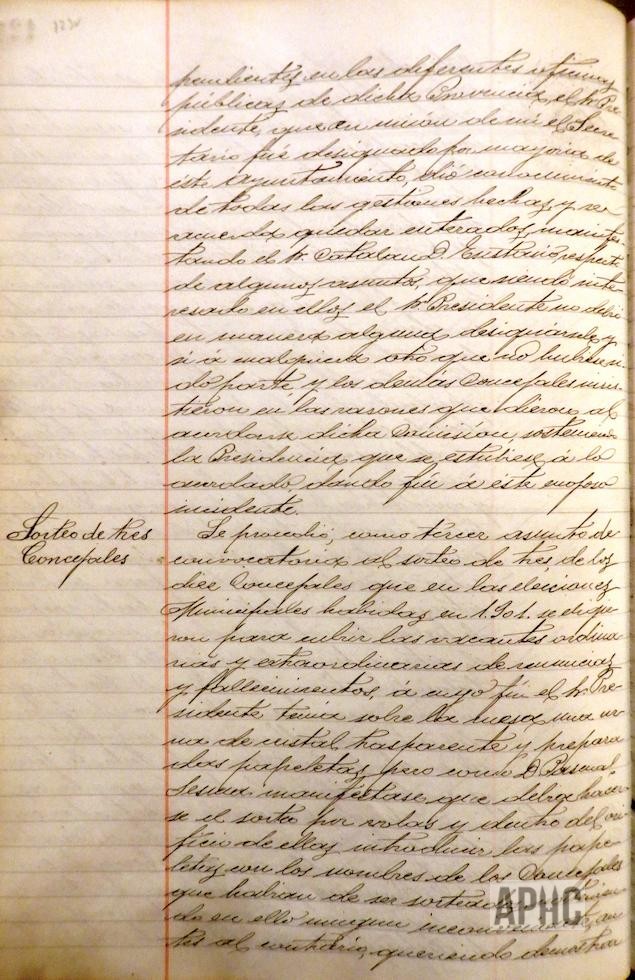 pendientes en las diferentes oficinas
públicas de dicha Provincia, el Sr. Pre-
sidente, que en unión de mi el Secre-
tario fué designado por mayoría de
éste Ayuntamiento, dió conocimiento
de todas las gestiones hechas y se
acuerda quedar enterados, manifes-
tando el Sr. Catalan D. Eustasio, respecto
de algunos asuntos, que siendo inte-
resado en ellos el Sr. Presidente no debió
en manera alguna designársele y
si á cualquiera otro que no hubiera si-
do parte, y los demás Concejales insis-
tieron en las razones que dieron al
acordarse dicha Comisión, sosteniendo
la Presidencia que se estubiese á lo
acordado dando fin á éste enojoso
incidente.
Sorteo de tres
Concejales
Se procedió, como tercer asunto de
convocatoria al sorteo de tres de los
diez Concejales que en las elecciones
Municipales habidas en 1.901. se eligie-
ron para cubrir las vacantes ordina-
rias y extraordinarias de renuncias
y fallecimientos, á cuyo fin el Sr. Pre-
sidente tenia sobre la mesa una ur-
na de cristal trasparente y prepara-
das papeletas, pero como D. Pascual
Sesma manifestase que debia hacer-
se el sorteo por volas y dentro del ori-
ficio de ellas introducir las pape-
letas con los nombres de los Concejales
que habian de ser sorteados,
do en ello ningun inconveniente, an-
tes al contrario, queriendo demostrar
APHC